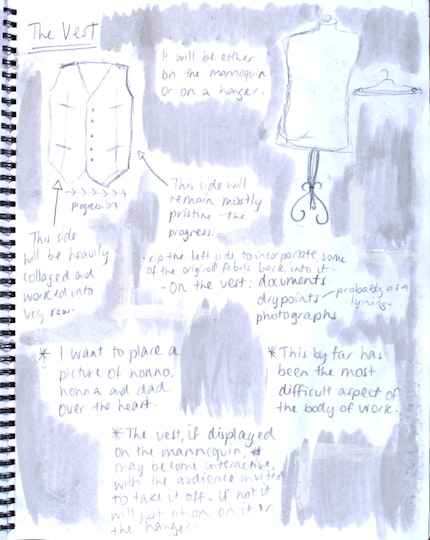 The Vest
It will be either
on the mannequin
or on a hanger.
This side will
remain mostly
pristine - the
progress.
progression
This side
will be heavily
collaged and
worked into
very raw.
· rip the left side to incorporate some
of the original fabric back into it.
- On the vest: documents
drypoints - probably as a
lining.
photographs
* I want to place a
picture of nonno,
nonna and dad
over the heart.
* This by far has
been the most
difficult aspect of
the body of work.
* The vest, if displayed
on the mannequin,
may become interactive,
with the audience invited
to take it off. If not it
will just sit on it or
the hanger.